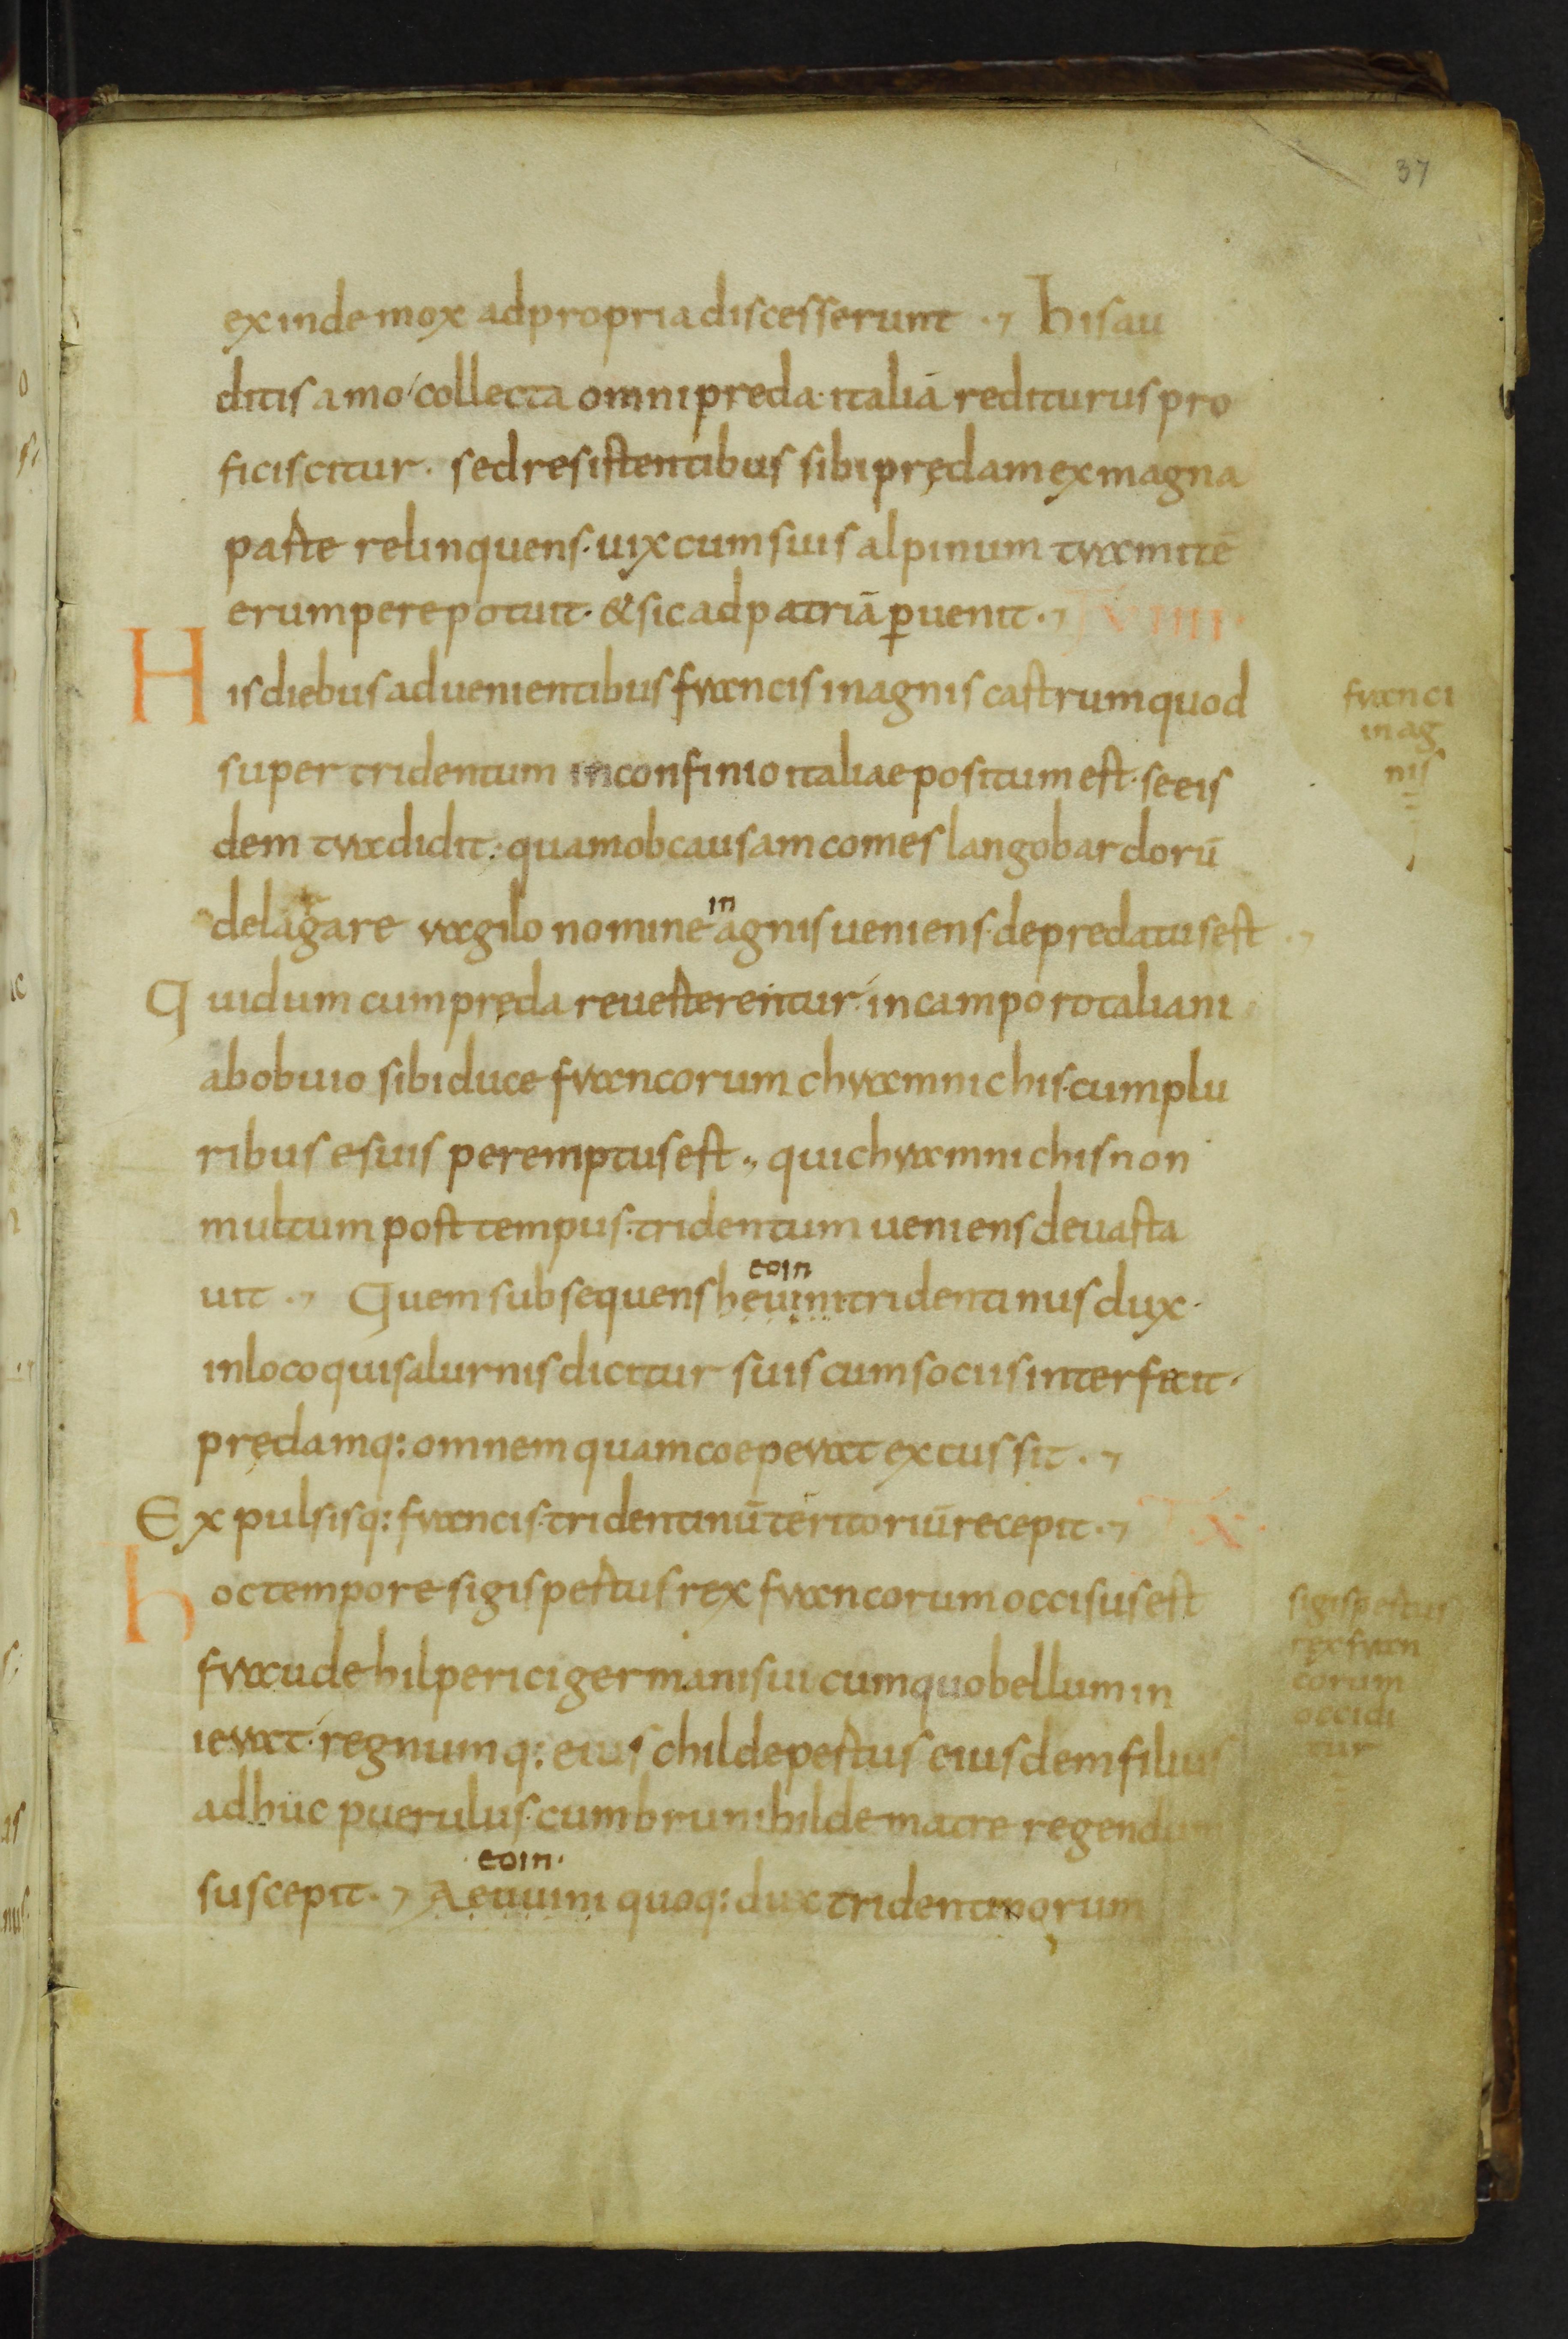 37
exinde mox ad propria discesserunt · Hisau
ditis amo collecta omni preda · italiā rediturus pro
ficiscitur · sed resistentibus sibi prędam ex magna
parte relinquens · uix cum suis alpinum tramitē
erumpere potuit · & sic ad patriā puenit · VIIII ·
His diebus aduenientibus francis inagnis castrum quod
super tridentum in confinio italiae positum est · se eis
dem tradidit · quam ob causam comes langobardorū
de lagare ragilo nomine in agnis ueniens · depredatus est ·
Qui dum cum pręda reuerteretur in campo rotaliani
ab obuio sibi duce francorum chramnichis · cum plu
ribus e suis peremptus est · qui chramnichis non
multum post tempus · tridentum ueniens deuasta
uit · Quem subsequens heuuin eoin tridentinus dux ·
in loco qui salurnis dicitur suis cum sociis interfecit ·
prędamq: omnem quam coeperat excussit ·
Expulsisq: francis · tridentinū teritoriū recepit · X ·
hoc tempore sigispertus rex francorum occisus est
fraude hilperici germani sui cum quo bellum in
ierat · regnumq: eius childepertus eiusdem filius
adhuc puerulus · cum brunihilde matre regendum
suscepit · Aeuuin eoin · quoq: dux tridentinorum
franci
inag
nis
sigispertus
rex fran
corum
occidi
tur